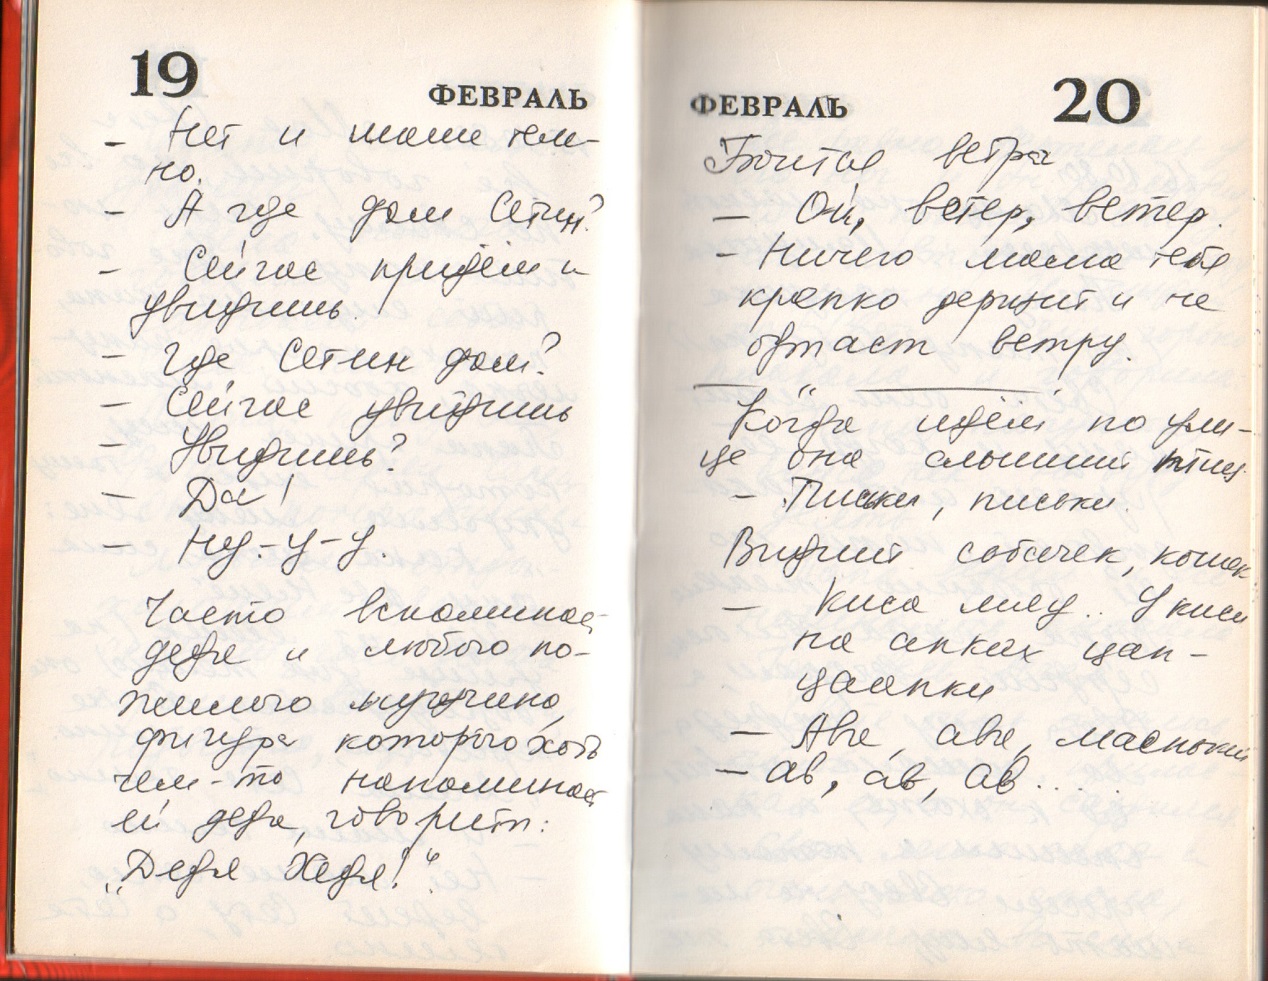 19
ФЕВРАЛЬ
- Нет и маме тем-
но.
- А где дом Сетин?
- Сейчас придём и
увидишь.
- Где Сетин дом?
- Сейчас увидишь
- Увидишь?
- Да!
- Ну-у-у.
Часто вспоминает
деда и любого по-
жилого мужчину,
фигура которого хоть
чем-то напоминает
ей деда, говорит:
„Дедя Хедя!“
ФЕВРАЛЬ
20
Боится ветра
- Ой, ветер, ветер.
- Ничего мама тебя
крепко держит и не
отдаст ветру.
Когда идём по ули-
це она слышит птиц
- Письки, письки.
Видит собачек, кошек
- Киса милу.. У киси
на апках цап-
цапки
- Ава, ава, масюький
- ав, ав, ав....